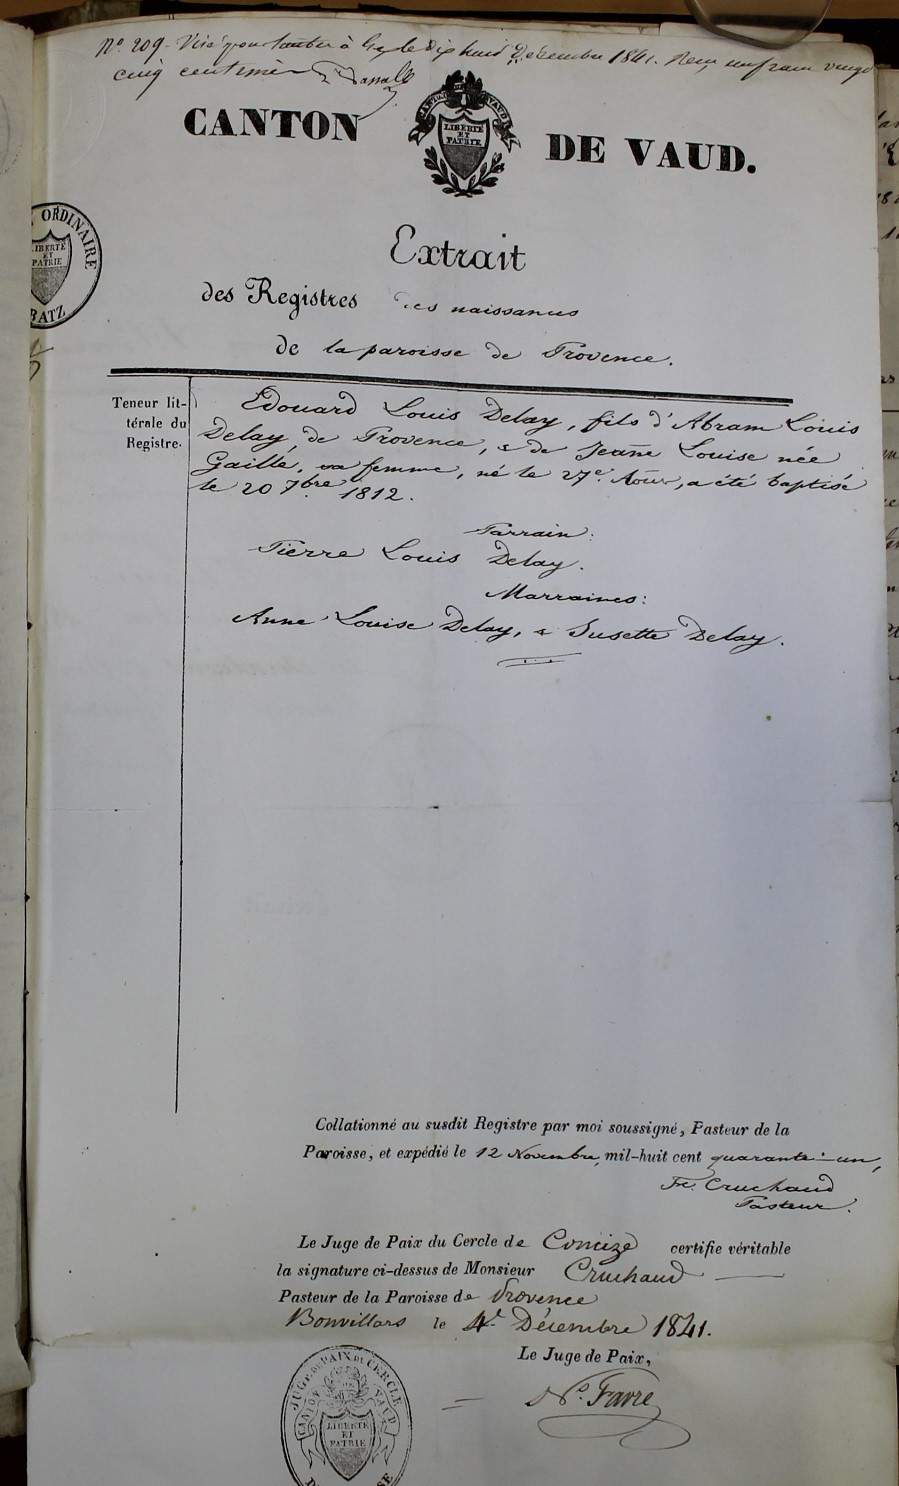 N.º 209. Visé pour timbre à Gex le dix huit Décembre 1841. Reçu un franc vingt
cinq centimes
CANTON DE VAUD.
CANTON VAUD
LIBERTÉ
ET
PATRIE
ORDINAIRE
LIBERTÉ
ET
PATRIE
BATZ
Extrait
des Registres des naissances
de la paroisse de Provence.
Teneur lit-
térale du
Registre.
Edouard Louis Delay, fils d'Abram Louis
Delay, de Provence, & de Jeanne Louise née
Gaille, sa femme, né le 27e. Août, a été baptisé
le 20 7bre. 1812.
Parrain:
Pierre Louis Delay.
Marraines:
Anne Louise Delay, & Susette Delay.
Collationné au susdit Registre par moi soussigné, Pasteur de la
Paroisse, et expédié le 12 Novembre, mil-huit cent quarante-un,
Fc. Cruchaud
Pasteur.
Le Juge de Paix du Cercle de Concize certifie véritable
la signature ci-dessus de Monsieur Cruchaud
Pasteur de la Paroisse de Provence
Bonvillars le 4e Décembre 1841.
Le Juge de Paix,
Ns. Favre
JUGE DE PAIX DU CERCLE
CANTON VAUD
LIBERTÉ
ET
PATRIE